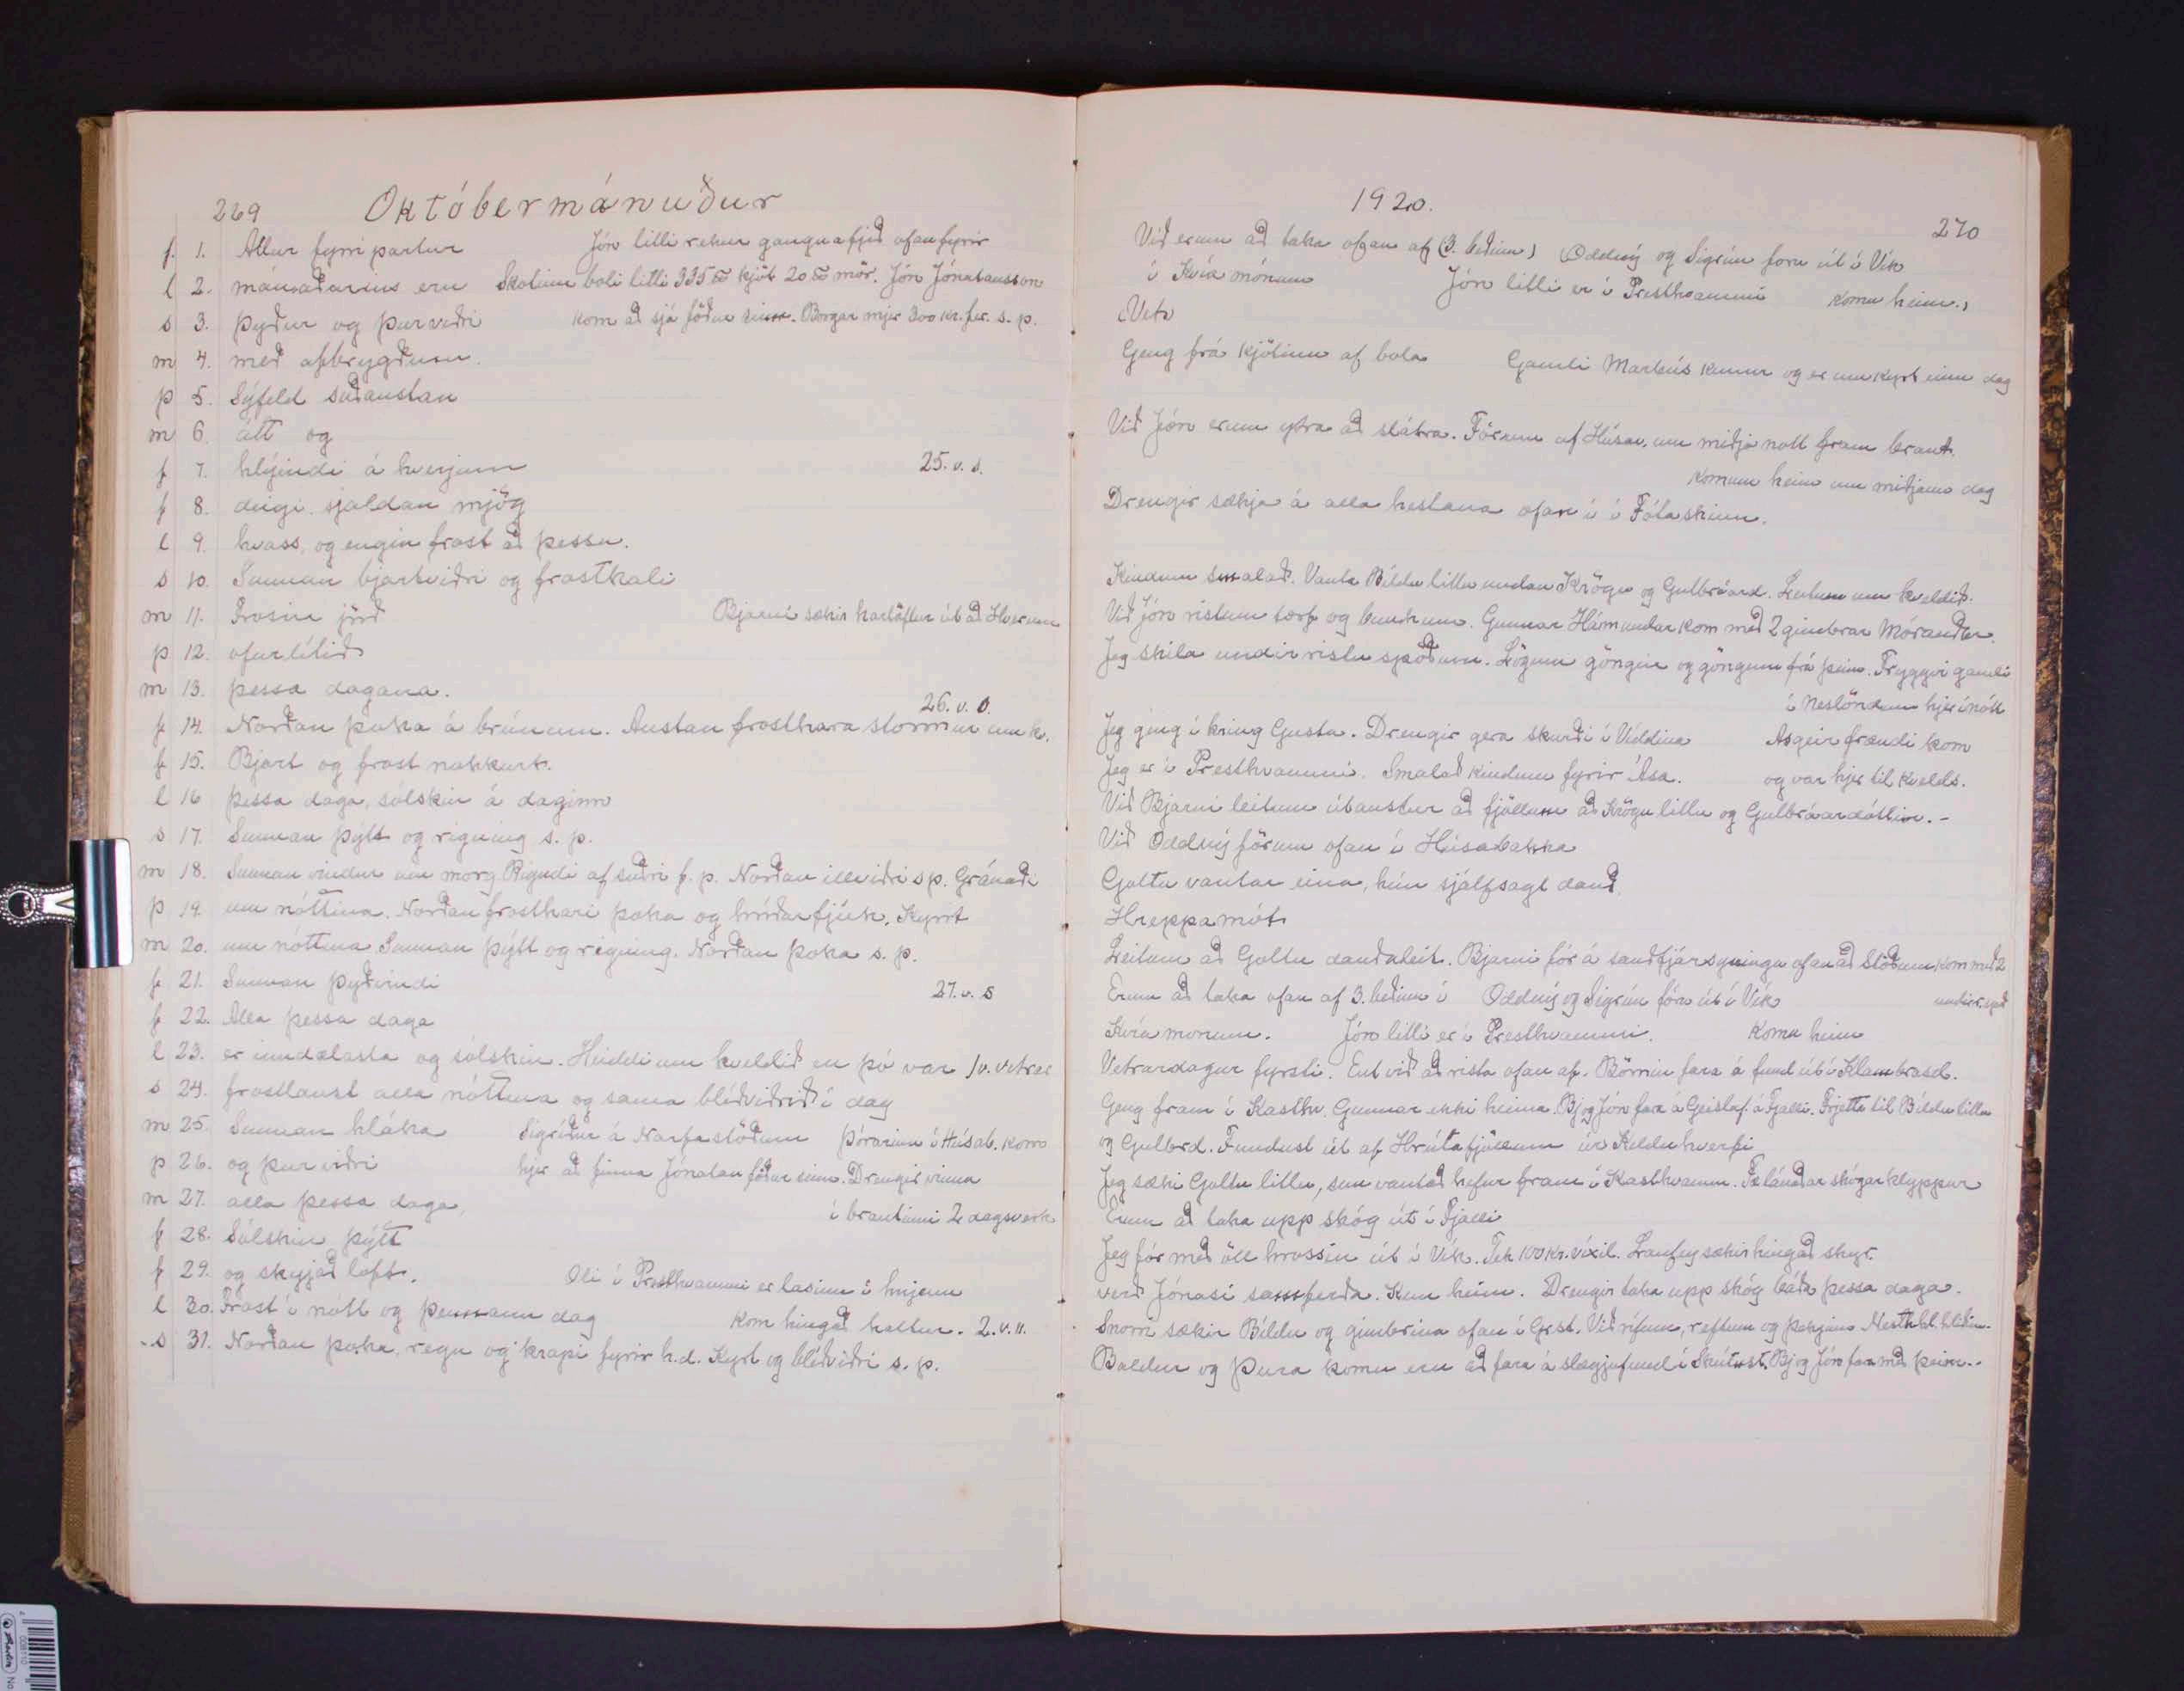 269 Októbermánuður
f. 1. Allur fyrri partur Jón litli rekur gangnafjeð ofan fyrir
l 2. mánaðarins eru Skotinn boli litli 335 ℔ kjöt 20 ℔ mör. Jón Jónatansson
s 3. þýður og þurviðri kom að sjá föður sinn. Borgar mjer 300 kr. fer s. p.
m 4. með afbrygðum.
þ 5. Sýfeld suðaustan
m 6. átt og
f 7. hlýindi á hverjum 25. v. s.
f 8. deigi sjaldan mjög
l 9. hvass, og engin frost að þessu.
s 10. Sunnan bjartviðri og frostkali
m 11. Frosin jörð Bjarni sækir kartöflur út að Hverum
þ 12. ofurlítið
m 13. þessa dagana.
26. v. s.
f 14. Norðan þoka á brúnum. Austan frosthara stormur um k.
f 15. Bjart og frost nokkurt.
l 16 þessa daga, sólskin á daginn
s 17. Sunnan þýtt og rigning s. p.
m 18. Sunnan vindur um morg. Rigndi af suðri f. p. Norðan illviðri s p. Gránaði
þ 19. um nóttina. Norðan frosthari þoka og hríðarfjúk. Kyrrt
m 20. um nóttina Sunnan þýtt og rigning. Norðan þoka s. p.
f 21. Sunnan þýðvindi 27. v. s
f 22. Alla þessa daga
l 23. er inndælasta og sólskin. Heiddi um kveldið en þó var 1 v. vetrar
s 24. frostlaust alla nóttina og sama blíðviðrið í dag
m 25 Sunnan hláka Sigríður á Narfastöðum Þórarinn í Húsab. kom
þ 26. og þurviðri hjer að finna Jónatan föður sinn. Drengir vinna
m 27. alla þessa daga, í brautinni 2 dagsverk
f 28. Sólskin þýtt
f 29. og skyjað loft. Óli í Presthvammi er lasinn í hnjenu
l 30. Frost í nótt og þennann dag kom hingað haltur. 2. v. v.
s 31. Norðan þoka, regn og krapi fyrir h.d. Kyrt og blíðviðri s. p.
1920.
270
Við erum að taka ofan af (3. beðinu) Oddný og Sigrún foru út í Vík
í Kvíamónum Jón litli er í Presthvammi komu heim.,
Vet
Geng frá kjötinu af bola Gamli Marteus kemur og er um kyrt einn dag
Við Jón erum ytra að slátra. Förum af Húsav. um miðja nott fram braut.
komum heim um miðjann dag
Drengir sækja á alla hestana ofan í í Fótaskinn.
Kindum smalað. Vanta Bíldu litlu undan Krögu og Gulbráard. Leitum um kveldið.
Við Jón ristum torf og bunkum. Gunnar Hámundar kom með 2 gimbrar Mórauðar
Jeg skila undirristu spöðum. Lögum göngin og göngum frá þeim. Tryggvi gamli
í Neslöndum hjer í nótt
Jeg geng í kring Gustu. Drengir gera skurði í Víddina Asgeir frændi kom
Jeg er í Presthvammi. Smalað kindum fyrir Ása. og var hjer til kvelds.
Við Bjarni leitum útaustur að fjöllum að Krögu litlu og Gulbráardóttir. -
Við Oddný förum ofan í Húsabakka
Goltu vantar eina, hún sjálfsagt dauð.
Hreppamót
Leitum að Goltu dauðaleit. Bjarni fór á sauðfjársyningu ofan að Stöðum kom með 2
Erum að taka ofan af 3. beðinu í Oddný og Sigrún fóru út í Vík undirspað
Kvíamonum. Jón litli er í Presthvammi. koma heim
Vetrardagur fyrsti. Ent við að rista ofan af. Börnin fara á fund út í Klambrasel.
Geng fram í Kasthv. Gunnar ekki heima. Bj og Jón fara á Geitaf. á Fjalli. Frjetta til Bíldu litlu
og Gulbrd. Fundust út af Hrútafjöllum úr Kelduhverfi
Jeg sæki Goltu litlu, sem vantað hefur fram í Kasthvamm. Fæ lánaðar skógarklyppur
Erum að taka upp skóg út í Fjalli
Jeg fór með öll hrossin út í Vík. Tek 100 kr. víxil. Laufey sækir hingað skyr.
verð Jónasi samferða. Kem heim. Drengir taka upp skóg báða þessa daga.
Snorri sækir Bíldu og gimbrina ofan í Grst. Við rífum, reftum og þekjum
Baldur og Þura komu eru að fara á slægjufund í Skútust. Bj og Jón fara með þeim..